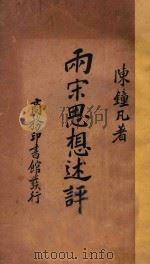 陳鐘凡著
兩宋思想述評
商務印書館發行
www.toutu8.com